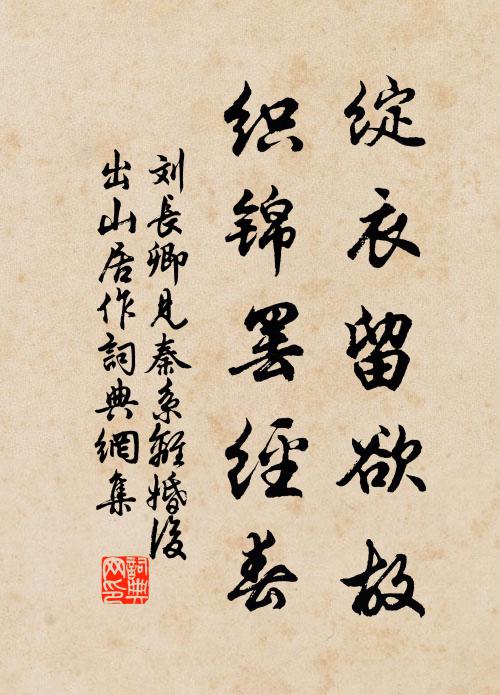 綻衣留欲故
织锦罢经春
刘長卿見秦系離婚後
出山居作詞典網集
詞典网印